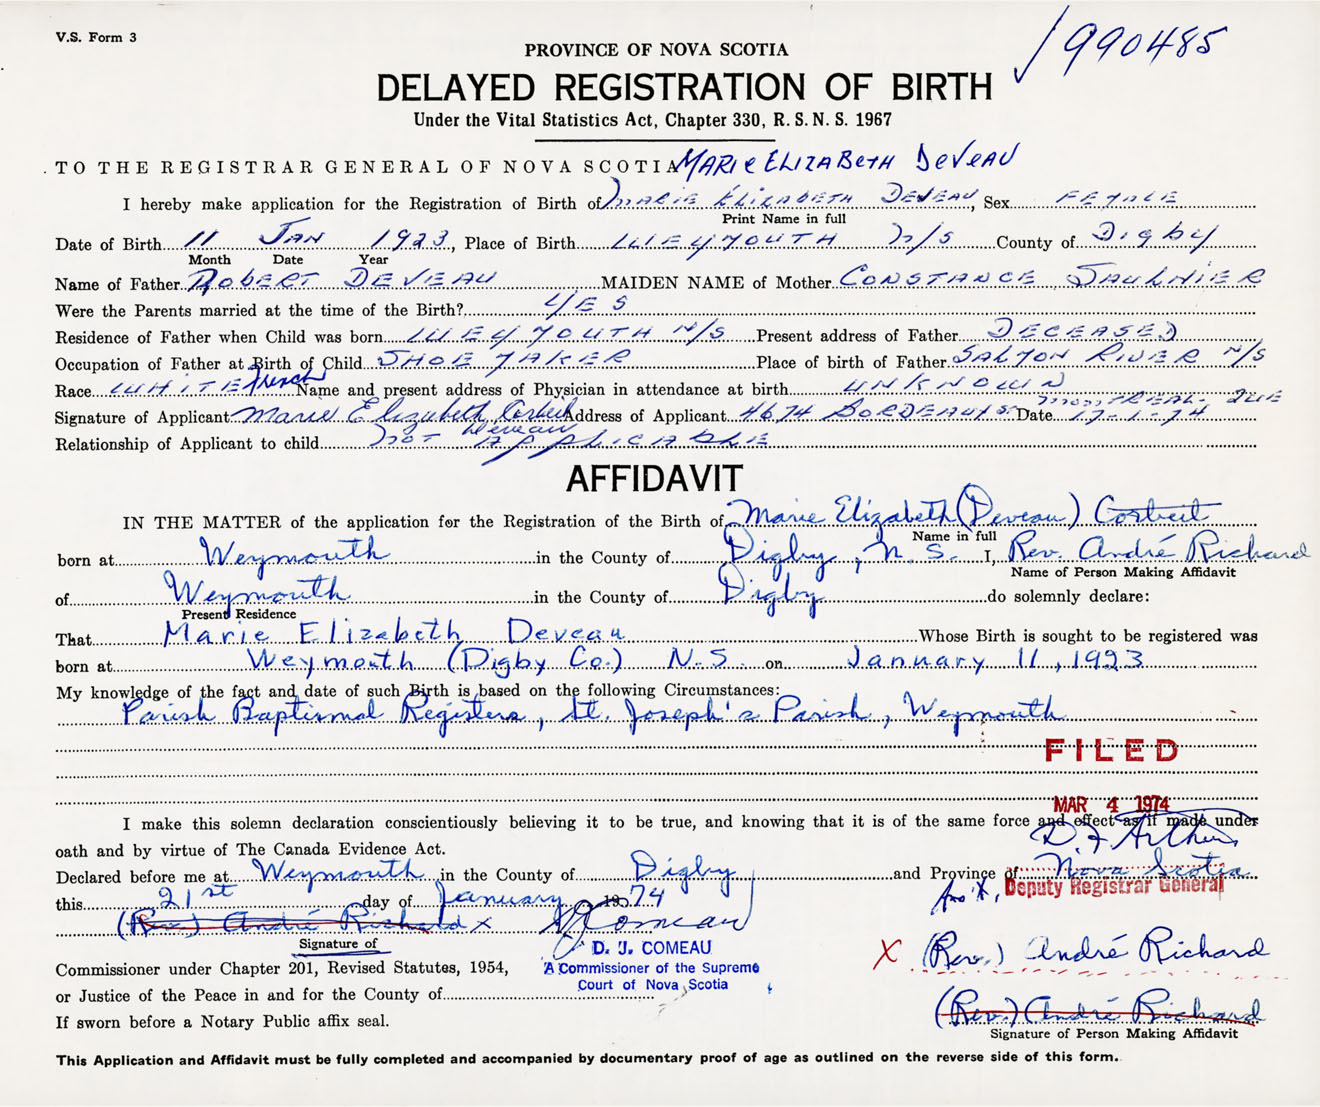 V.S. Form 3
1990485
PROVINCE OF NOVA SCOTIA
DELAYED REGISTRATION OF BIRTH
Under the Vital Statistics Act, Chapter 330, R.S.N.S. 1967
TO THE REGISTRAR GENERAL OF NOVA SCOTIA MARIE ELIZABETH DEVEAU
I hereby make application for the Registration of Birth of MARIE ELIZABETH DEVEAU, Sex FEMALE
Print Name in full
Date of Birth 11 JAN 1923, Place of Birth WEYMOUTH N/S County of DIGBY
Month Date Year
Name of Father ROBERT DEVEAU MAIDEN NAME of Mother CONSTANCE SAULNIER
Were the Parents married at the time of the Birth? YES
Residence of Father when Child was born WEYMOUTH N/S Present address of Father DECEASED
Occupation of Father at Birth of Child SHOE MAKER Place of birth of Father SALMON RIVER N/S
Race WHITE French Name and present address of Physician in attendance at birth UNKNOWN
MONTREAL - QUE
Signature of Applicant Marie Elizabeth Address of Applicant 4674 BORDEAUX ST Date 17-1-74
Deveau
Relationship of Applicant to child NOT APPLICABLE
AFFIDAVIT
IN THE MATTER of the application for the Registration of the Birth of Marie Elizabeth (Deveau)
Name in full
born at Weymouth in the County of Digby, N.S. I, Rev. André Richard
Name of Person Making Affidavit
of Weymouth in the County of Digby do solemnly declare:
Present Residence
That Marie Elizabeth Deveau Whose Birth is sought to be registered was
born at Weymouth (Digby Co.) N.S. on January 11, 1923
My knowledge of the fact and date of such Birth is based on the following Circumstances:
Parish Baptismal Registers, St. Joseph's Parish, Weymouth
FILED
MAR 4 1974
I make this solemn declaration conscientiously believing it to be true, and knowing that it is of the same force and effect as if made under
oath and by virtue of The Canada Evidence Act.
Declared before me at Weymouth in the County of Digby and Province of Nova Scotia
Deputy Registrar General
this 21st day of January 1974
(Rev.) André Richard x
Signature of
D. J. COMEAU
A Commissioner of the Supreme
Court of Nova Scotia
X (Rev.) André Richard
Commissioner under Chapter 201, Revised Statutes, 1954,
or Justice of the Peace in and for the County of
(Rev.) André Richard
If sworn before a Notary Public affix seal.
Signature of Person Making Affidavit
This Application and Affidavit must be fully completed and accompanied by documentary proof of age as outlined on the reverse side of this form.